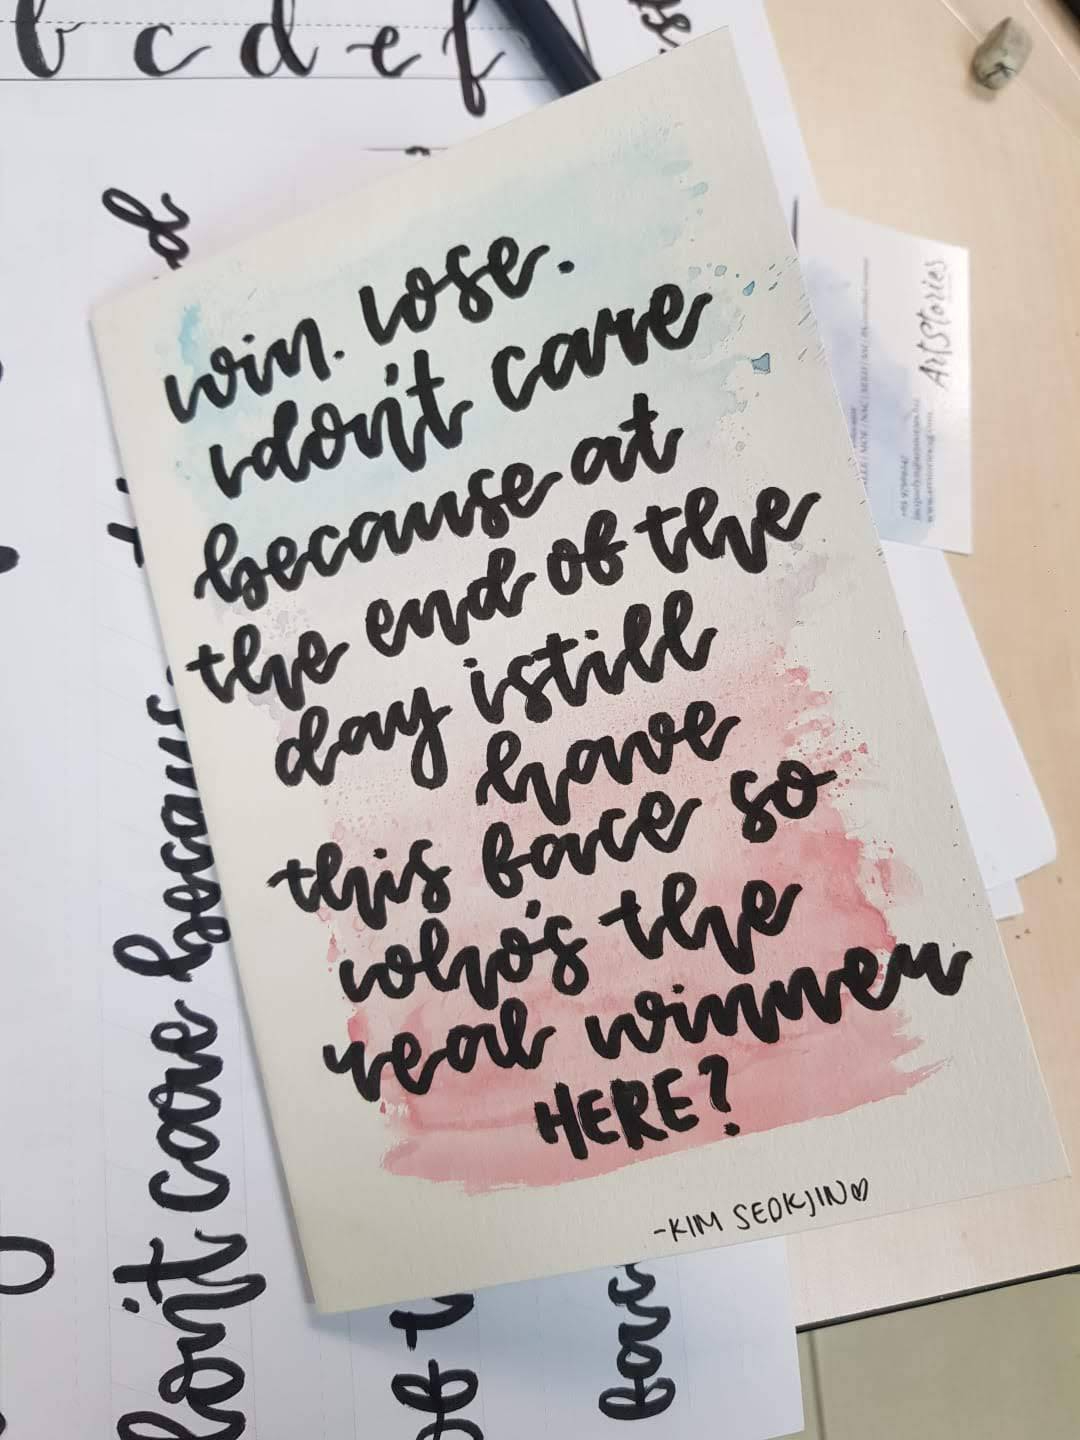 b c d e f
win. lose.
i don't care
because at
the end of the
day i still
have
this face so
who's the
real winner
HERE?
-KIM SEOKJIN♡
ArtStories
don't care because